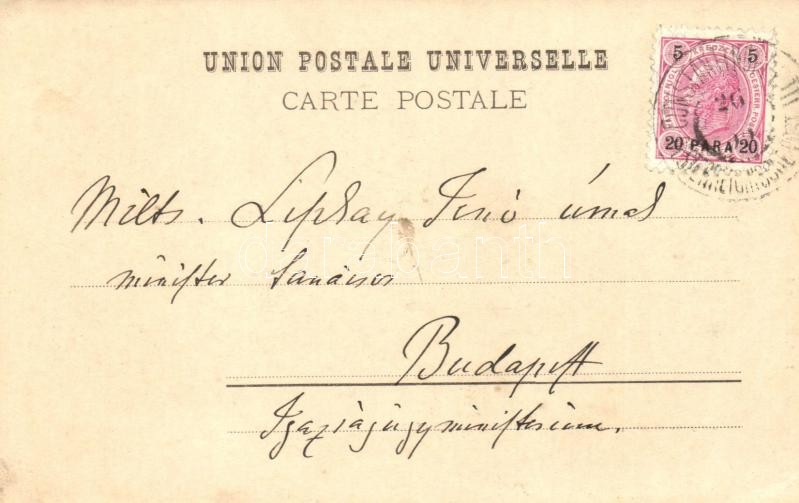 UNION POSTALE UNIVERSELLE
CARTE POSTALE
5 5
20 PARA 20
26
Milts. Lipkay Jenő úrnak
minister tanácsos
Budapest
Igazságügyministerium.
darabanth